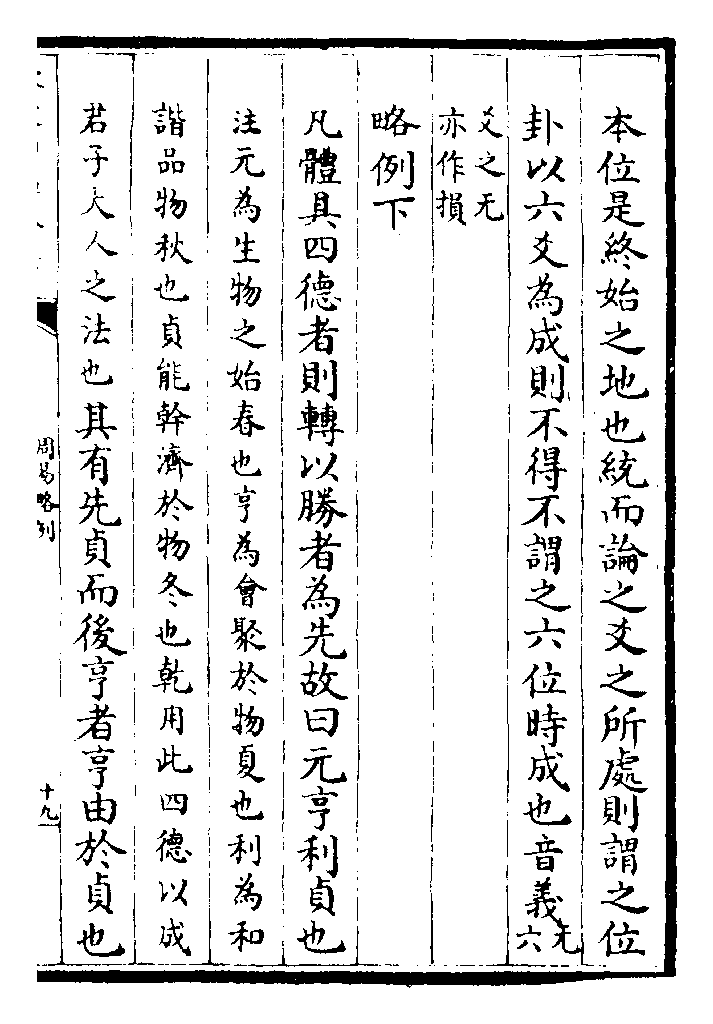 本位是終始之地也統而論之爻之所處則謂之位
卦以六爻為成則不得不謂之六位時成也音義无六
爻之无
亦作損
略例下
凡體具四德者則轉以勝者為先故曰元亨利貞也
注元為生物之始春也亨為會聚於物夏也利為和
諧品物秋也貞能幹濟於物冬也乾用此四德以成
君子大人之法也其有先貞而後亨者亨由於貞也
周易略例
十九